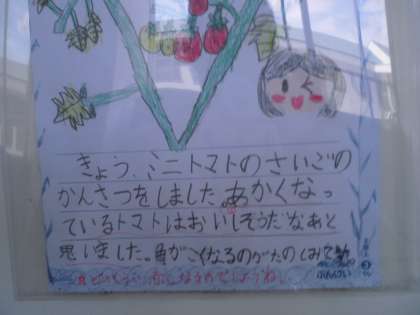 きょう、ミニトマトのさいごの
かんさつをしました。あかくなっ
ているトマトはおいしそうだなあと
思いました。色がこくなるのがたのしみです